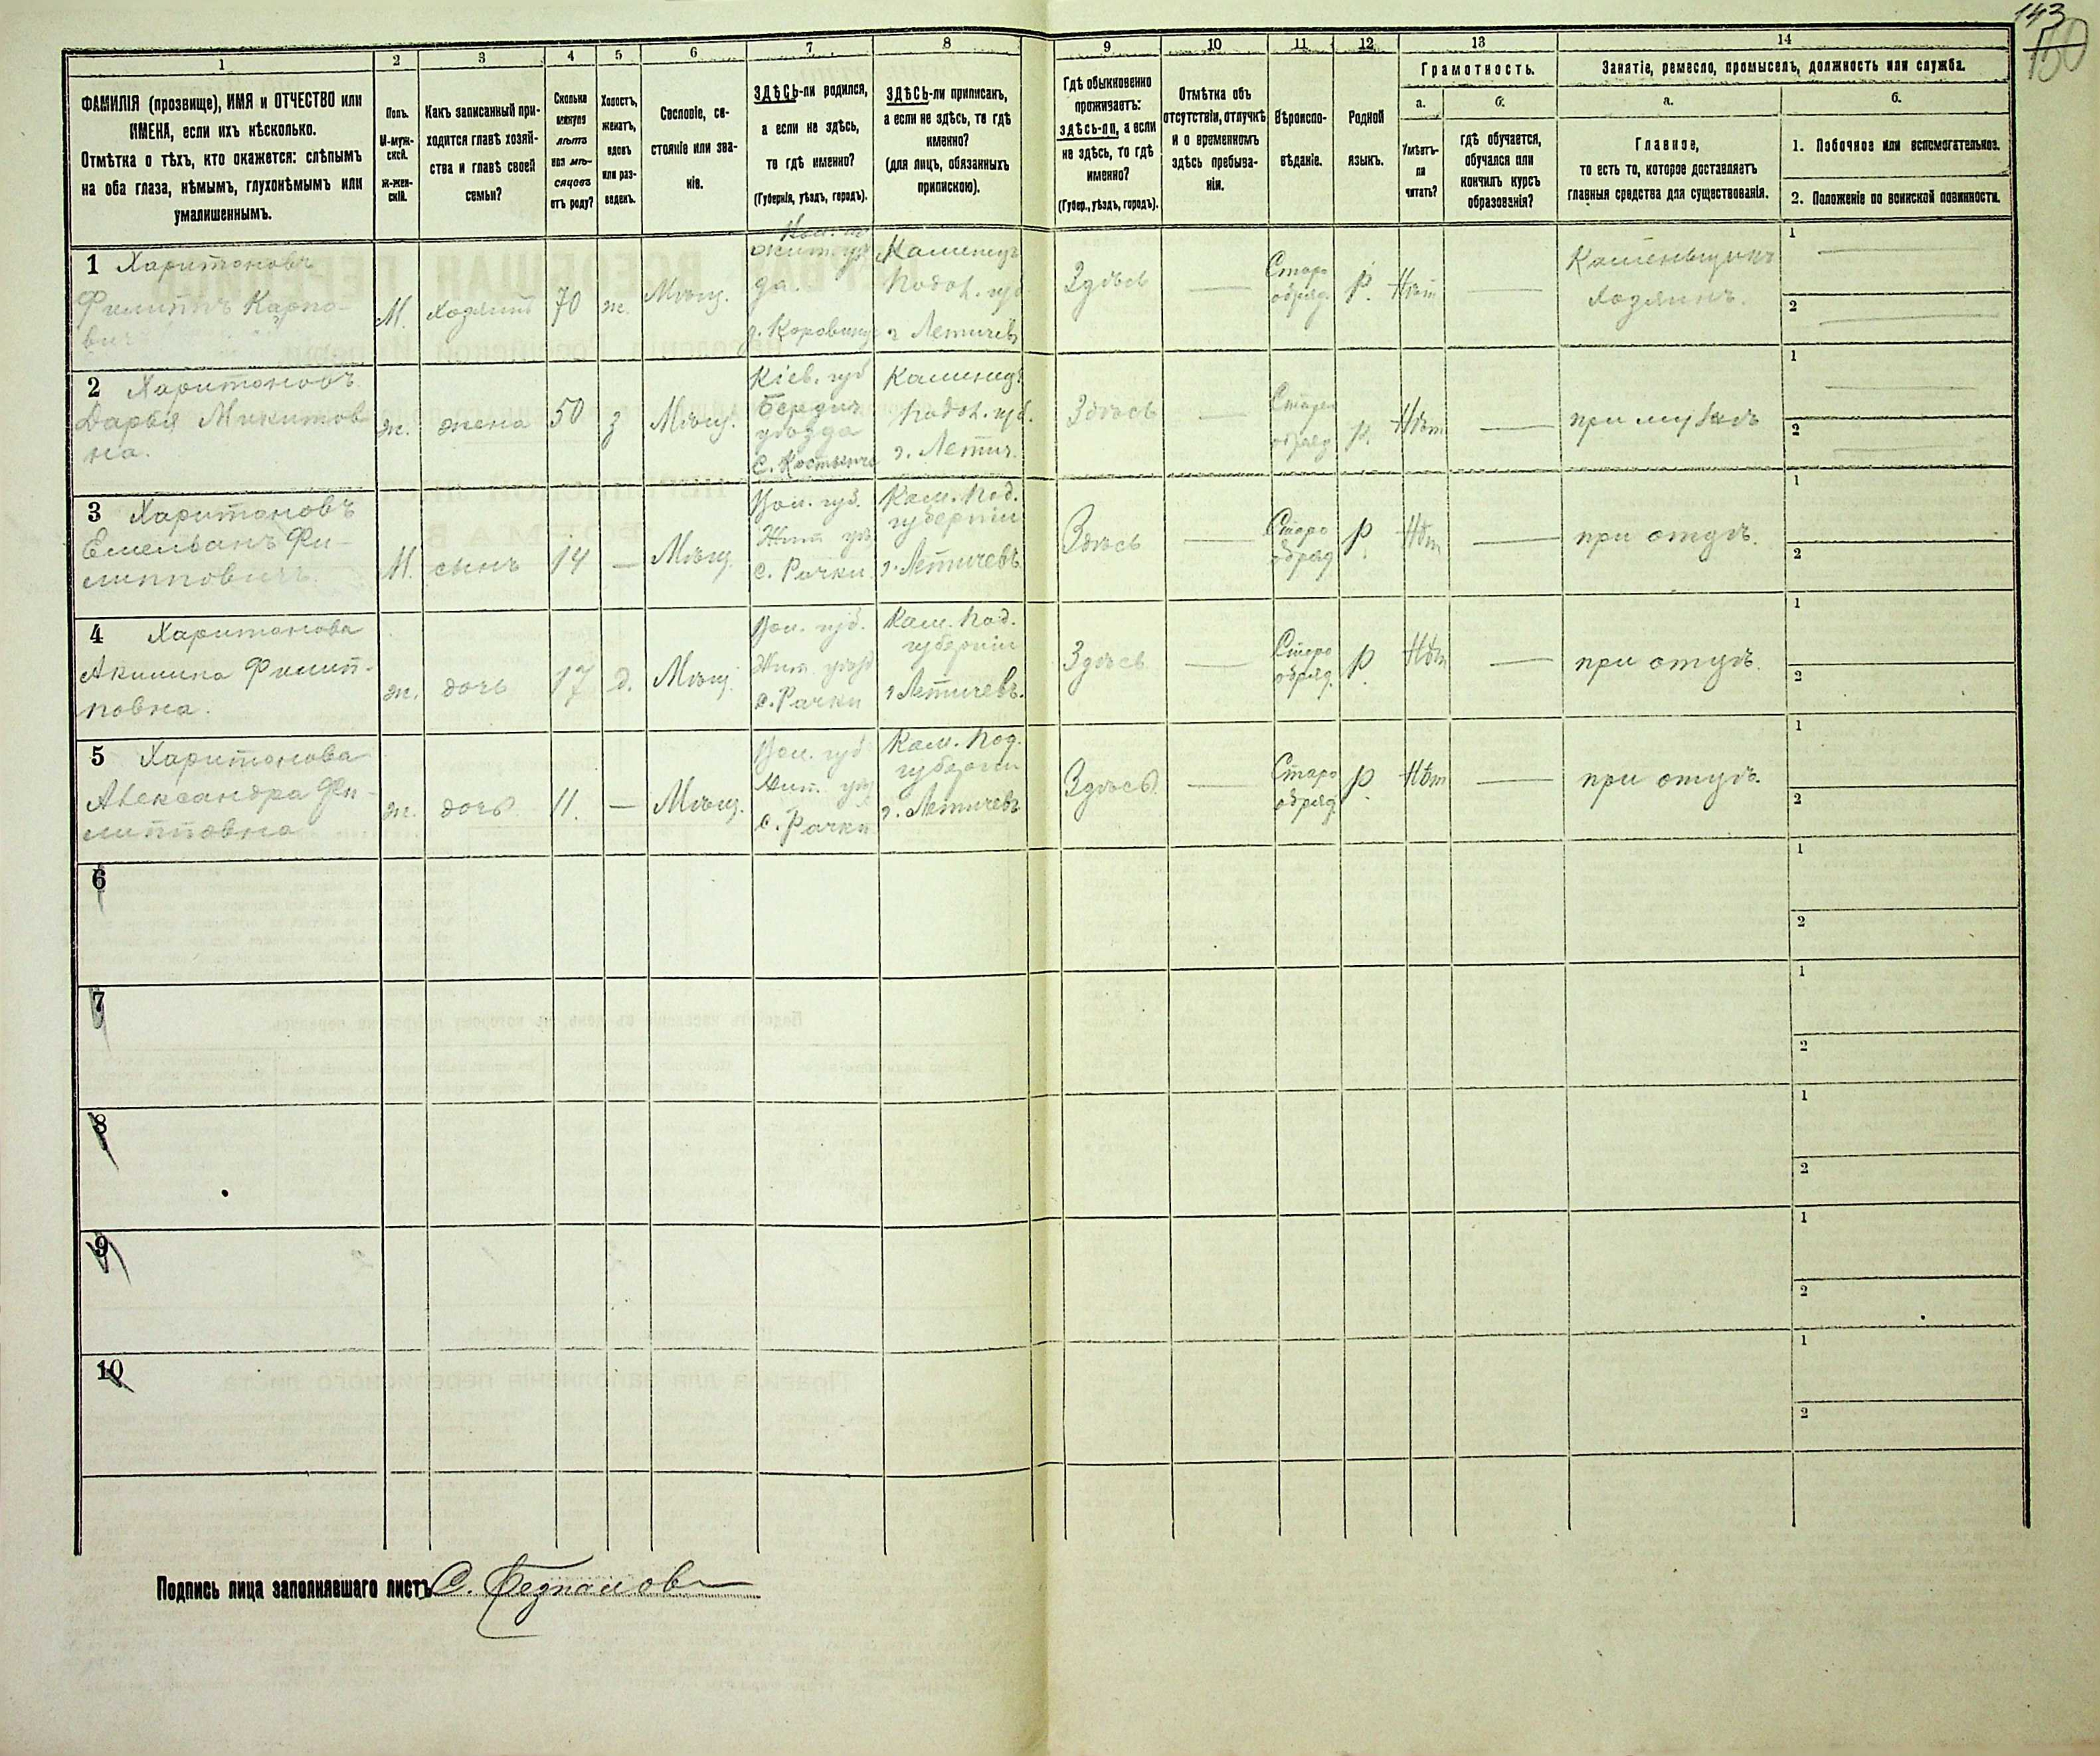 143
150
1
2
3
4
5
6
7
8
9
10
11
12
13
14
ФАМИЛІЯ (прозвище), ИМЯ и ОТЧЕСТВО или
ИМЕНА, если ихъ нѣсколько.
Отмѣтка о тѣхъ, кто окажется: слѣпымъ
на оба глаза, нѣмымъ, глухонѣмымъ или
умалишеннымъ.
Полъ.
М-муж-
ской.
Ж-жен-
скій.
Какъ записанный при-
ходится главѣ хозяй-
ства и главѣ своей
семьи?
Сколько
минуло
лѣтъ
или мѣ-
сяцовъ
отъ роду?
Холостъ,
женатъ,
вдовъ
или раз-
веденъ.
Сословіе, со-
стояніе или зва-
ніе.
ЗДѢСЬ-ли родился,
а если не здѣсь,
то гдѣ именно?
(Губернія, уѣздъ, городъ).
ЗДѢСЬ-ли приписанъ,
а если не здѣсь, то гдѣ
именно?
(для лицъ, обязанныхъ
припискою).
Гдѣ обыкновенно
проживаетъ:
здѣсь-ли, а если
не здѣсь, то гдѣ
именно?
(Губер., уѣздъ, городъ).
Отмѣтка объ
отсутствіи, отлучкѣ
и о временномъ
здѣсь пребыва-
ніи.
Вѣроиспо-
вѣданіе.
Родной
языкъ.
Грамотность.
а.
Умѣетъ-
ли
читать?
б.
гдѣ обучается,
обучался или
кончилъ курсъ
образованія?
Занятіе, ремесло, промыселъ, должность или служба.
а.
Главное,
то есть то, которое доставляетъ
главныя средства для существованія.
б.
1. Побочное или вспомогательное.
2. Положеніе по воинской повинности.
1 Харитоновъ
Филиппъ Карпо-
вичъ
М.
хозяинъ
70
ж.
Мѣщ.
да
Каменец
Подол. губ
г Летичев
Здѣсь
—
Старо
обряд.
Р.
Нѣт
—
Каменьщикъ
Хозяинъ.
1
2
2 Харитоновъ
Дарья Микитов
на.
ж.
жена
50
з
Мѣщ.
Кіев. губ
Бердич
уѣзда
Каменец
Подол. губ.
г. Летич.
Здѣсь
—
Старо
обряд
р.
Нѣт
—
при мужѣ
1
2
3 Харитоновъ
Емельянъ Фи-
липповичъ.
М.
сынъ
14
—
Мѣщ.
Вол. губ.
Жит уѣз
с. Рачки
Кам. Под.
губерніи
г. Летичевъ
Здѣсь
—
Старо
обряд
р.
Нѣт
—
при отцѣ.
1
2
4 Харитонова
Акилина Филип-
повна.
ж.
дочь
17
д.
Мѣщ.
Вол. губ.
Жит. уѣзд
с. Рачки
Кам. Под.
губерніи
г Летичевъ.
Здѣсь
—
Старо
обряд.
р.
Нѣт
—
при отцѣ.
1
2
5 Харитонова
Александра Фи-
липповна
ж.
дочь
11.
—
Мѣщ.
Вол. губ
Жит. уѣз
с. Рачки
Кам. Под.
губерніи
г. Летичевъ
Здѣсь
—
Старо
обряд.
р
Нѣт
—
при отцѣ.
1
2
6
1
2
7
1
2
8
1
2
9
1
2
10
1
2
Подпись лица заполнявшаго листъ